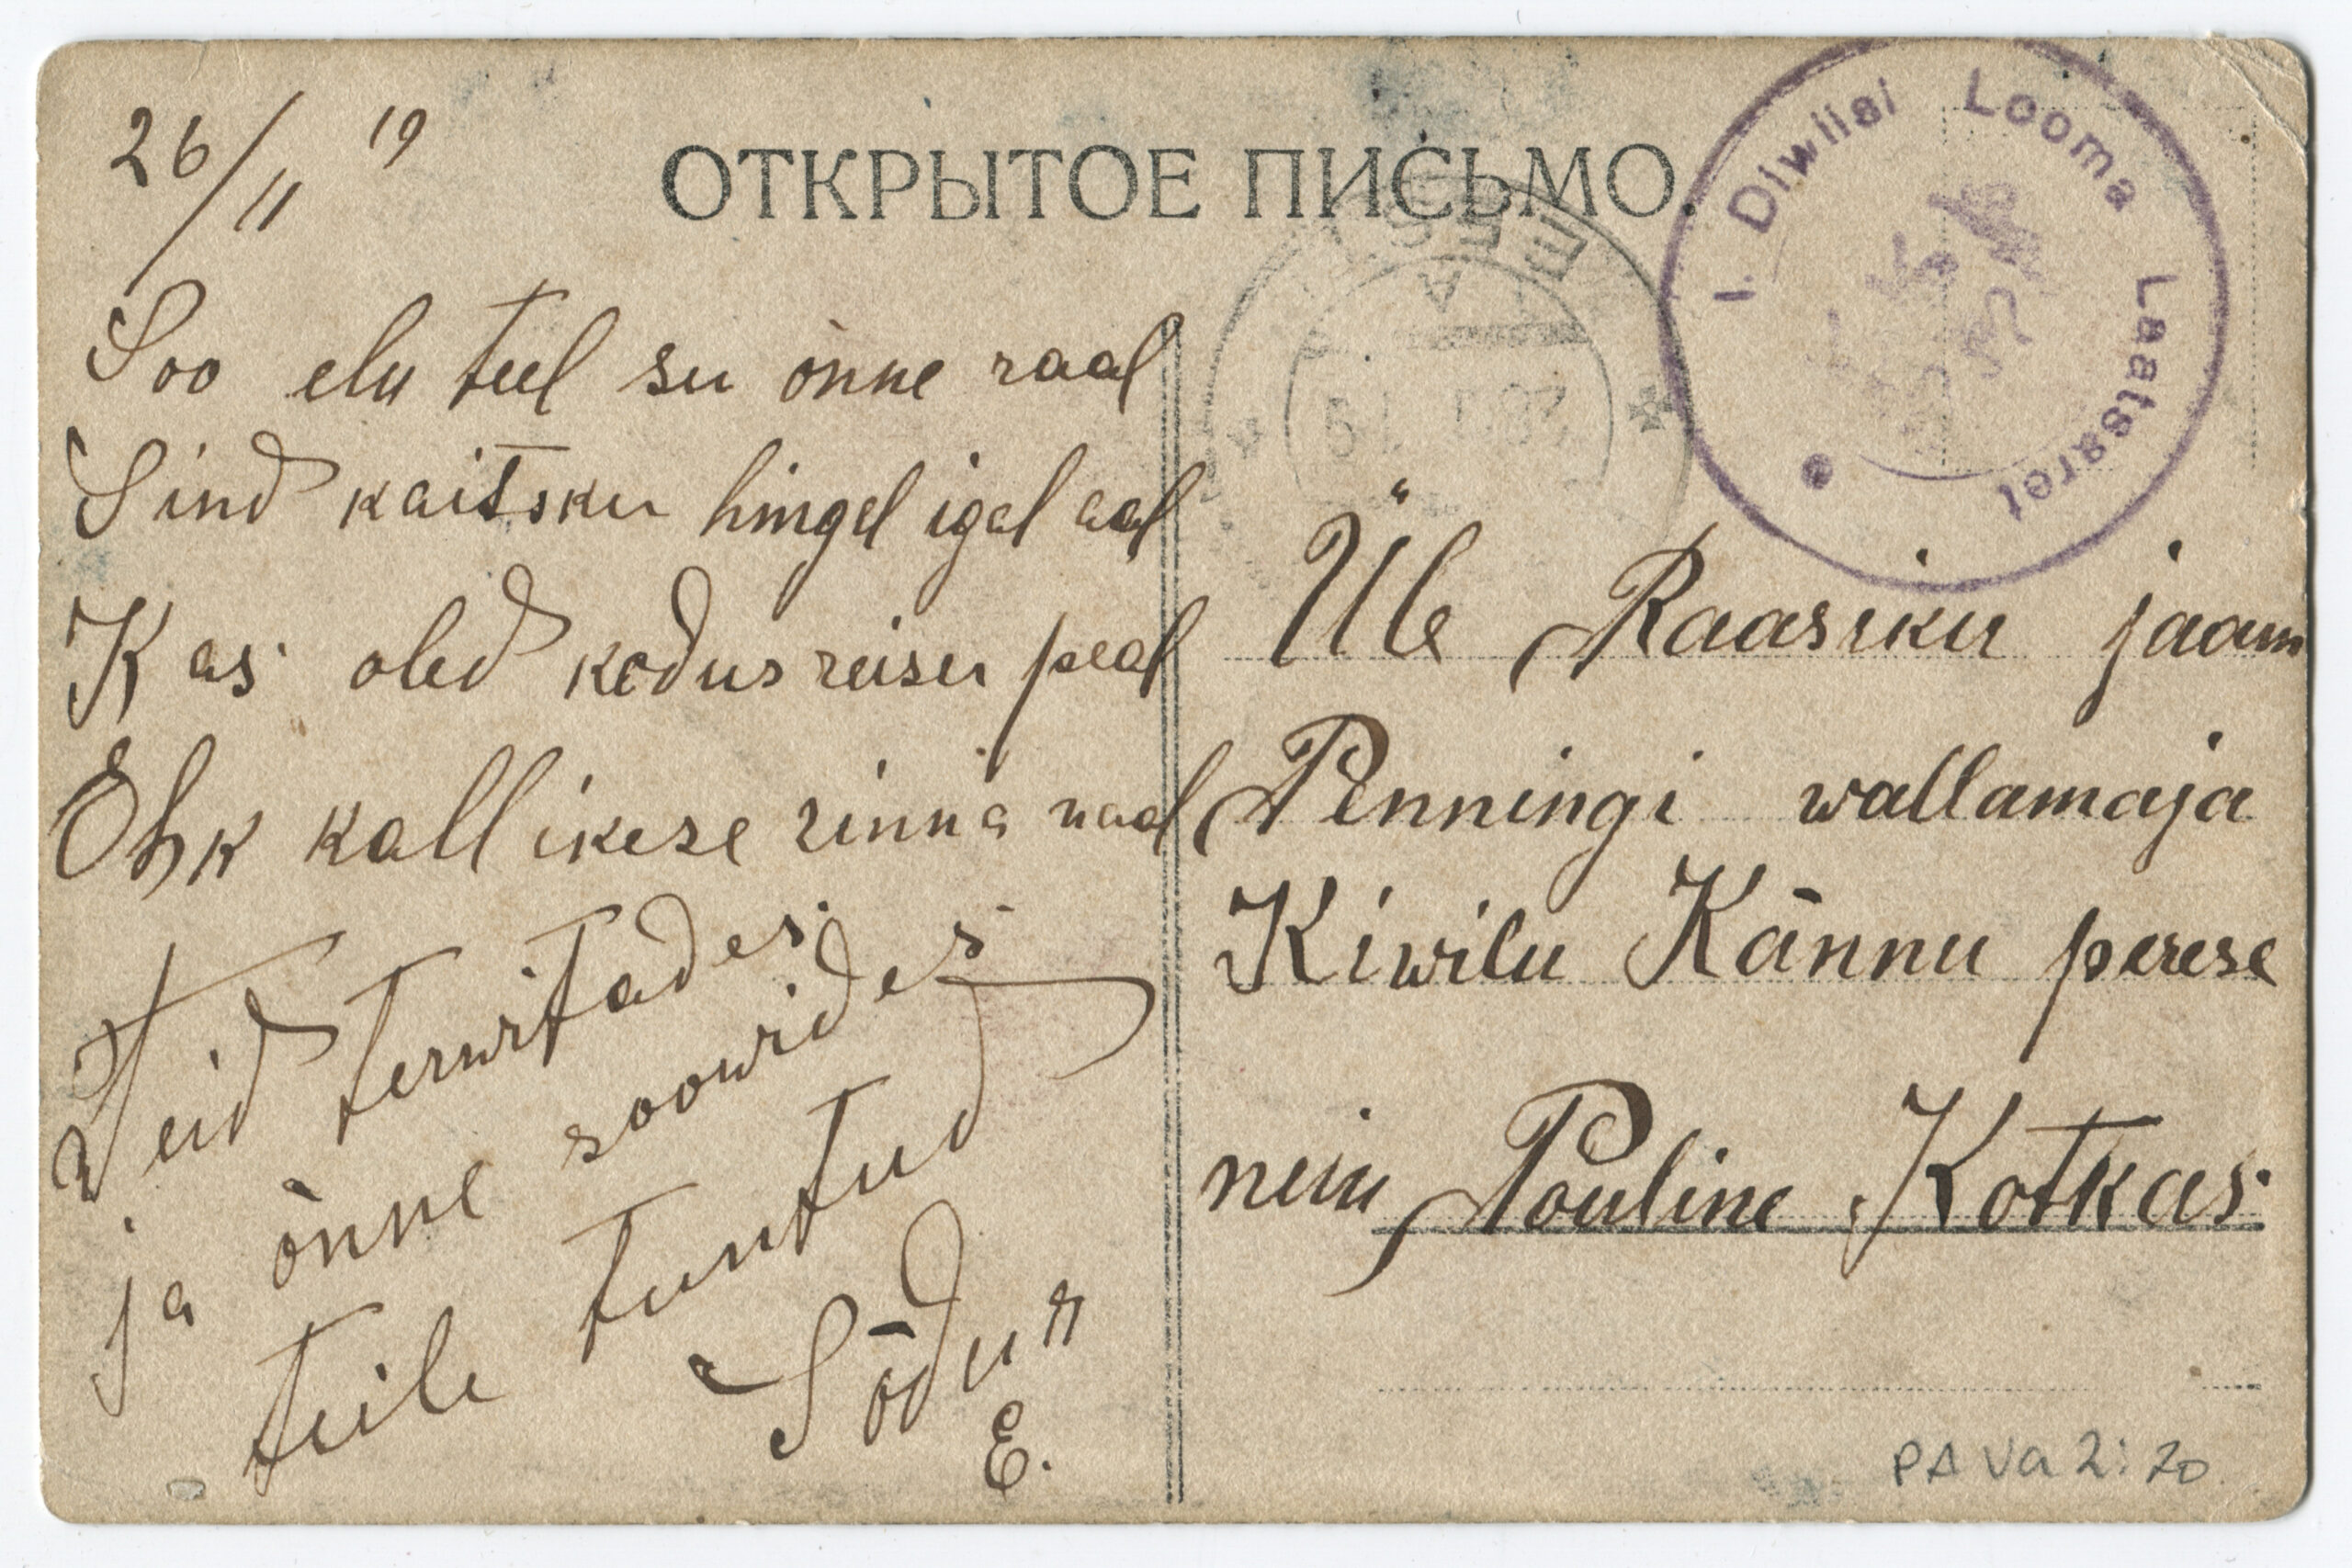 26/11 19
ОТКРЫТОЕ ПИСЬМО.
I. Diwiisi Looma Laatsaret
Soo elu teel su õnne raal
Sind kaitsku hingel igal aal
Kas oled kodus reisu peal
Ehk kallikese rinna naal
Teid terwitades
ja õnne soowides
teile tuntud
Sõdur
E.
Üle Raasiku jaam
Penningi wallamaja
Kiwilu Kännu perese
neiu Pouline Kotkas
PA Va 2:20